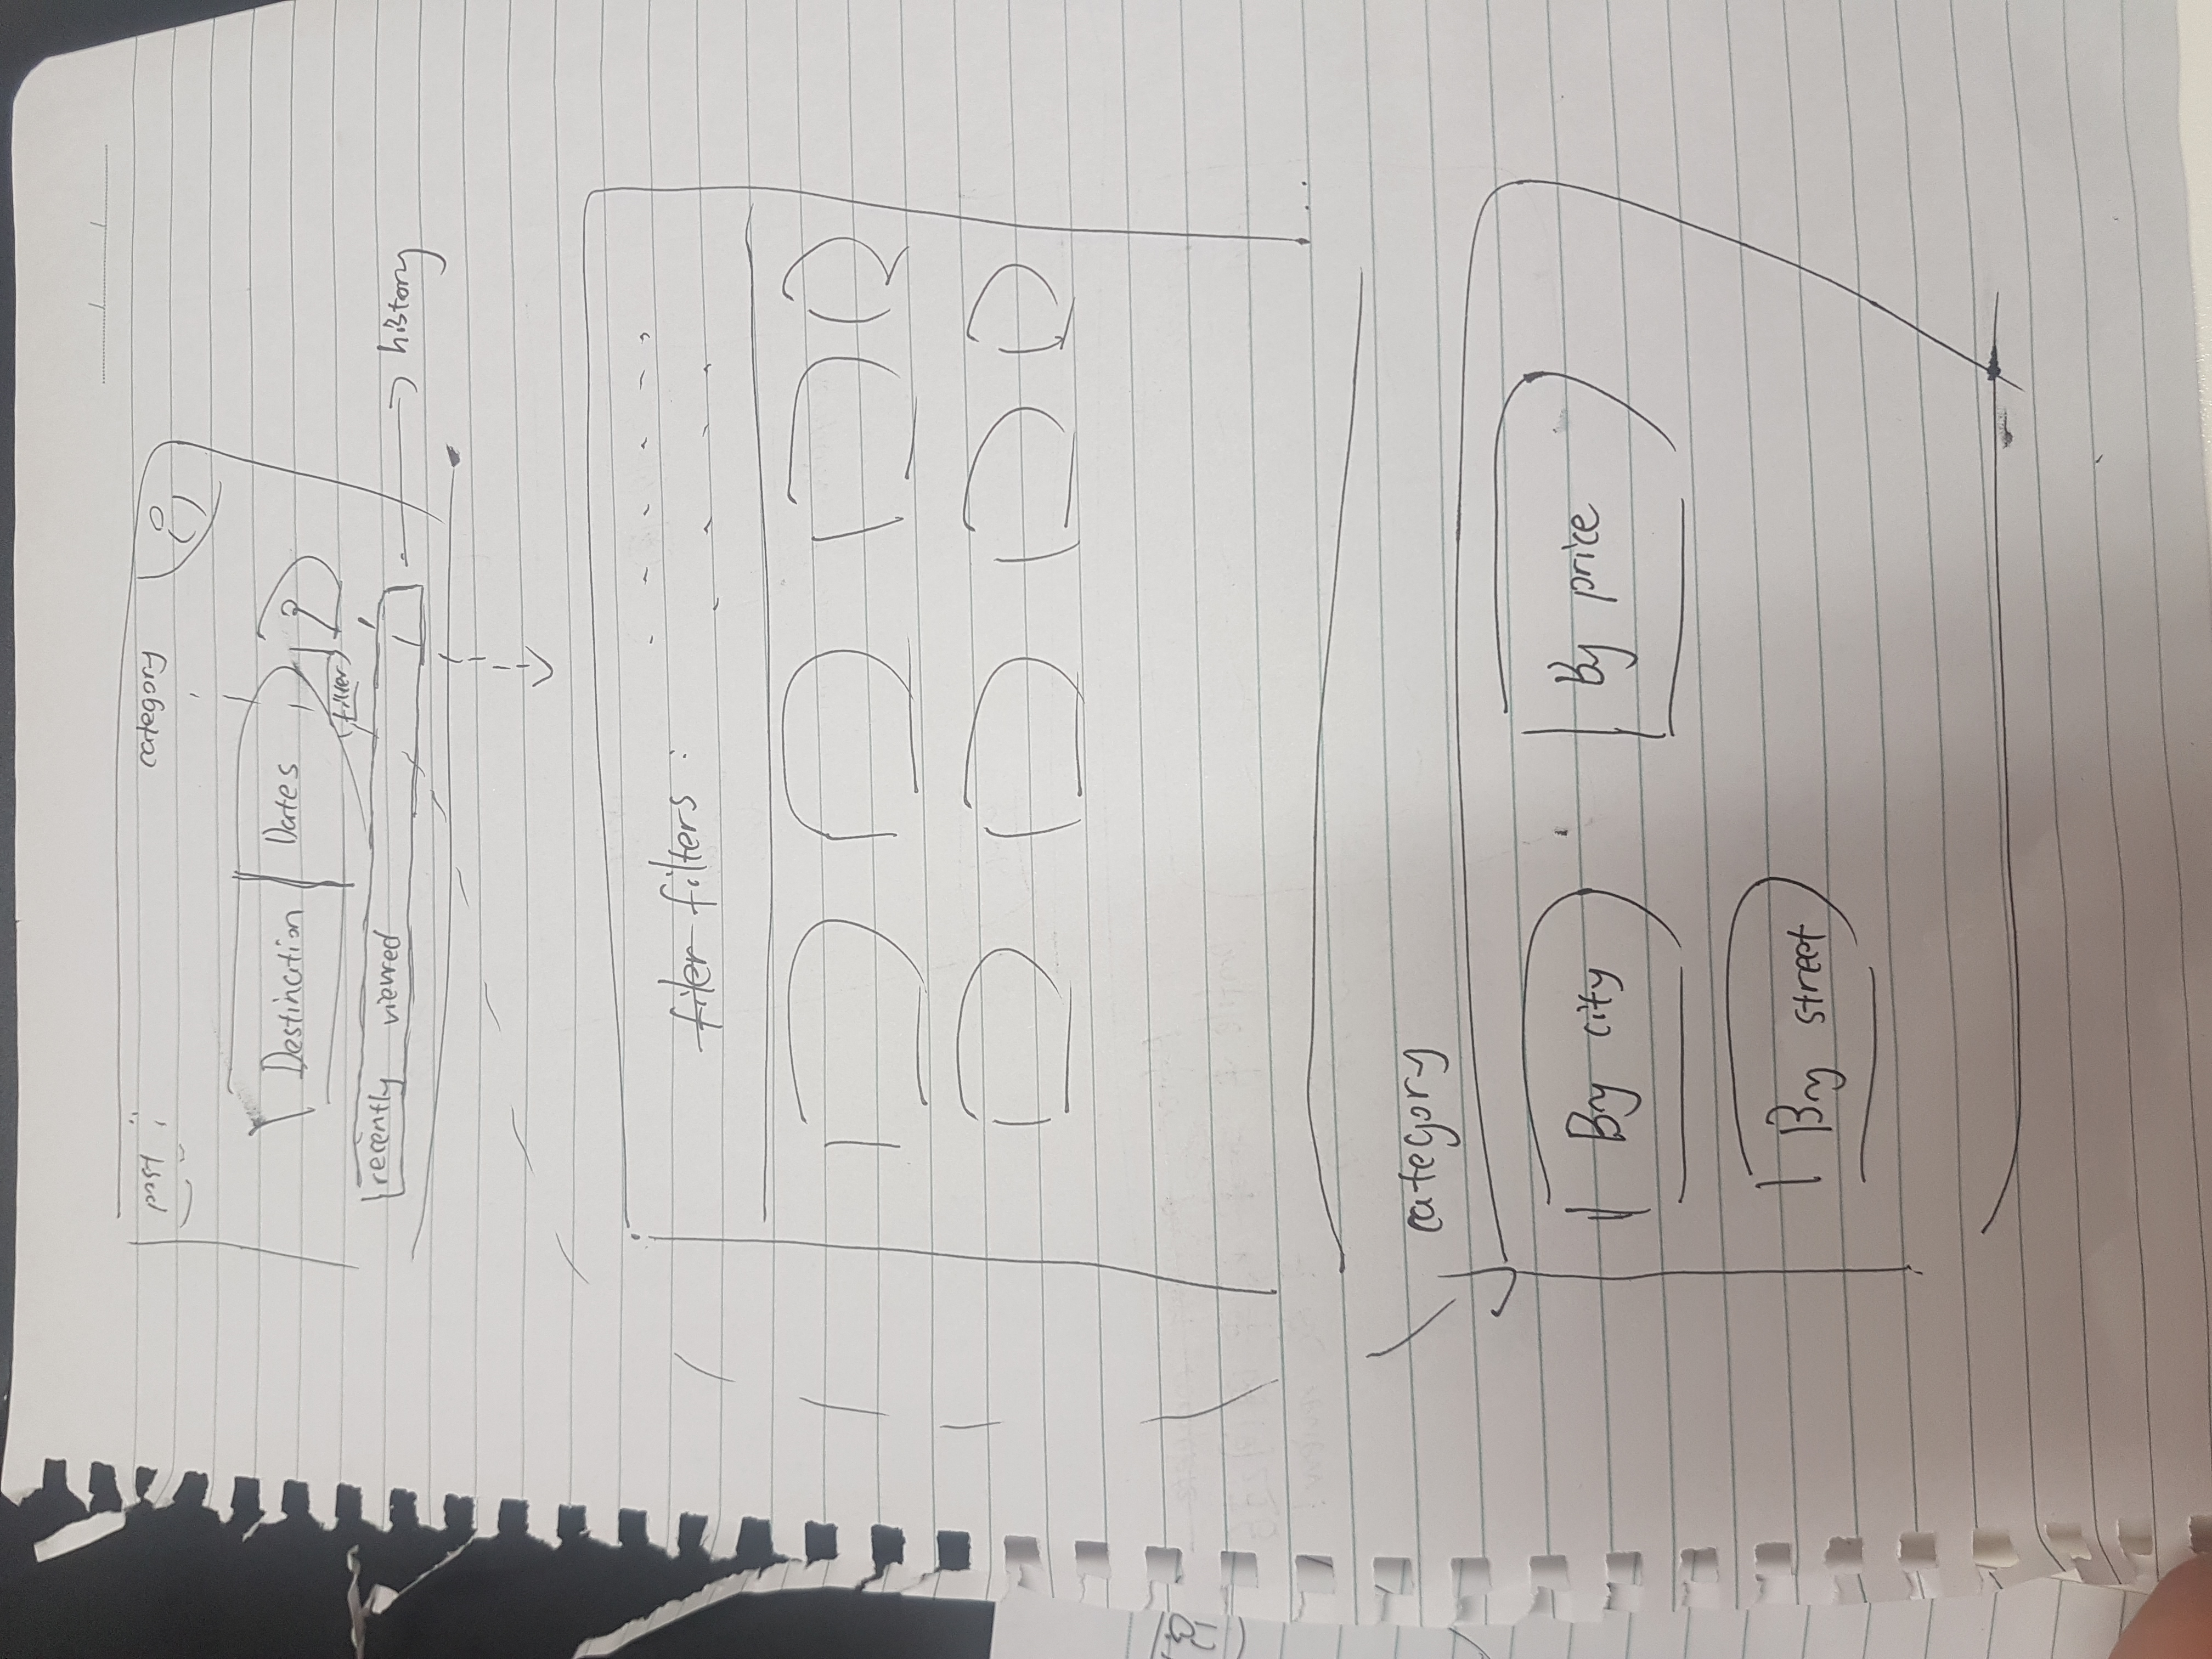 post
category
Destination Dates
(filter)
recently viewed
history
filer filters :
category
By city
By price
By street